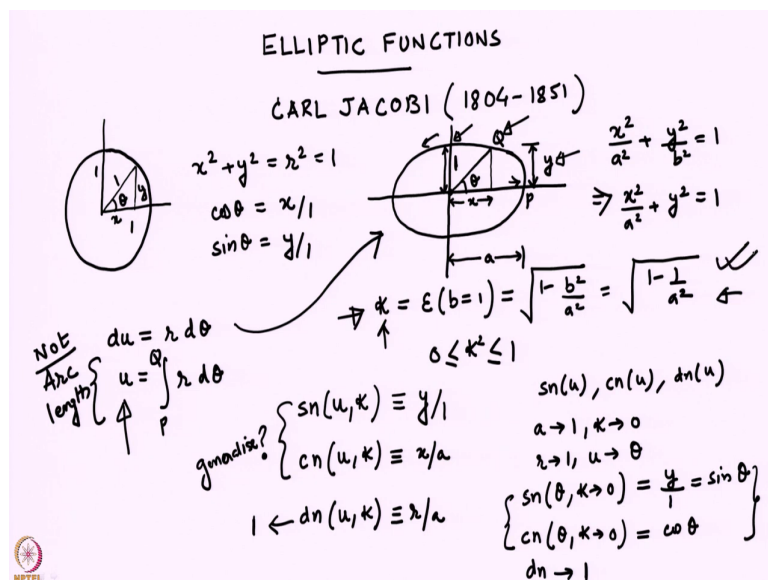 ELLIPTIC FUNCTIONS
CARL JACOBI (1804-1851)
x² + y² = r² = 1
cosθ = x/1
sinθ = y/1
1 1 θ y x 1
1 Q θ x y P a
x²/a² + y²/b² = 1
⇒ x²/a² + y² = 1
→ k = ε(b=1) = √(1 - b²/a²) = √(1 - 1/a²) ←
0 ≤ k² ≤ 1
Not Arc length {
du = r dθ
u = ∫_P^Q r dθ
sn(u,k) ≡ y/1
cn(u,k) ≡ x/a
1 ← dn(u,k) ≡ r/a
sn(u), cn(u), dn(u)
a→1, k→0
r→1, u→θ
sn(θ, k→0) = y/1 = sinθ
cn(θ, k→0) = cosθ
dn → 1
NPTEL